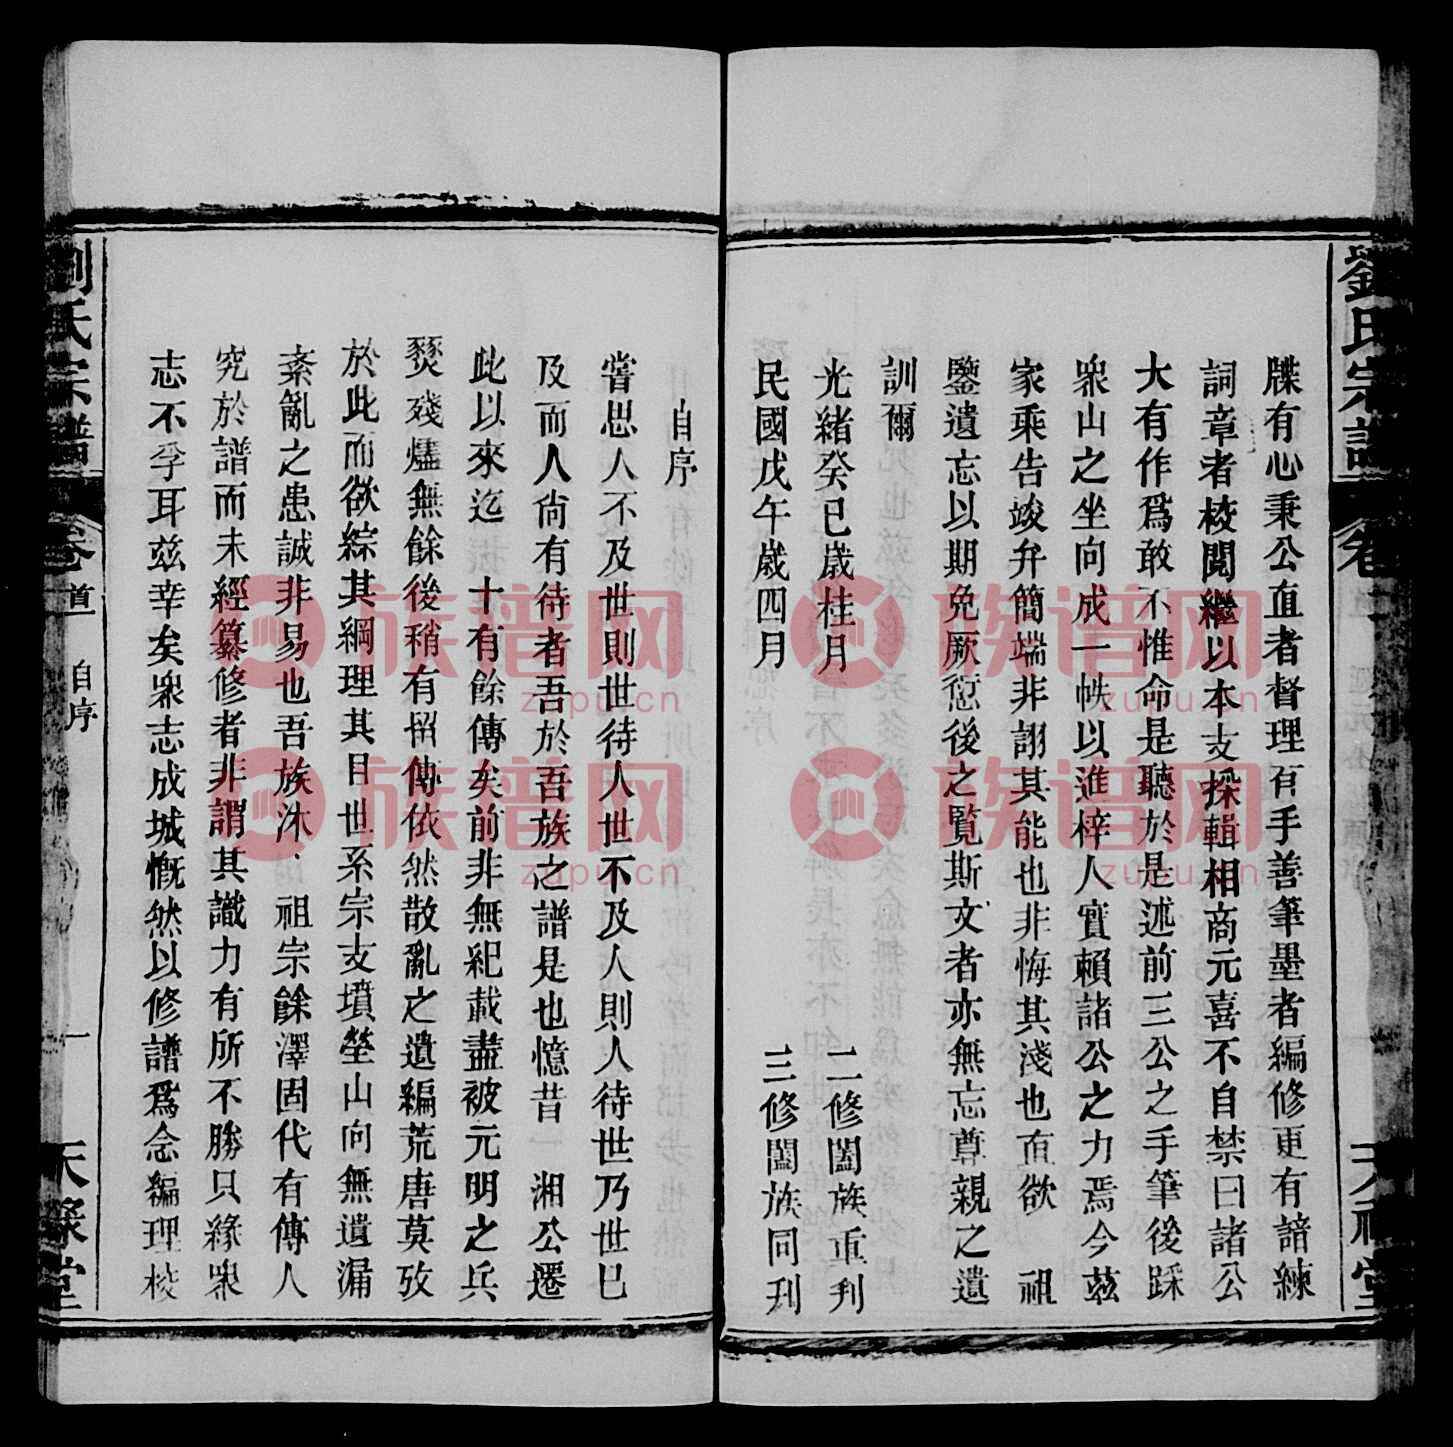 劉氏宗譜
卷
天祿堂
牒有心秉公直者督理有手善筆墨者編修更有諳練
詞章者校閱繼以本支採輯相商元喜不自禁曰諸公
大有作爲敢不惟命是聽於是述前三公之手筆後踩
眾山之坐向成一帙以進梓人實賴諸公之力焉今茲
家乘告竣弁簡端非詡其能也非悔其淺也直欲 祖
鑒遺忘以期免厥愆後之覧斯文者亦無忘尊親之遺
訓爾
光緒癸巳歲桂月 二修闔族重刋
民國戊午歲四月 三修闔族同刋
自序
嘗思人不及世則世待人世不及人則人待世乃世已
及而人尙有待者吾於吾族之譜是也憶昔一 湘公遷
此以來迄 十有餘傳矣前非無紀載盡被元明之兵
燹殘燼無餘後稍有留傳依然散亂之遺編荒唐莫攷
於此而欲綜其綱理其目世系宗支墳塋山向無遺漏
紊亂之患誠非易也吾族沐 祖宗餘澤固代有傳人
究於譜而未經纂修者非謂其識力有所不勝只緣眾
志不孚耳茲幸矣眾志成城慨然以修譜爲念編理校
劉氏宗譜
卷首
自序
一
天祿堂
族谱网
zupu.cn
族谱网
zupu.cn
族谱网
zupu.cn
族谱网
zupu.cn